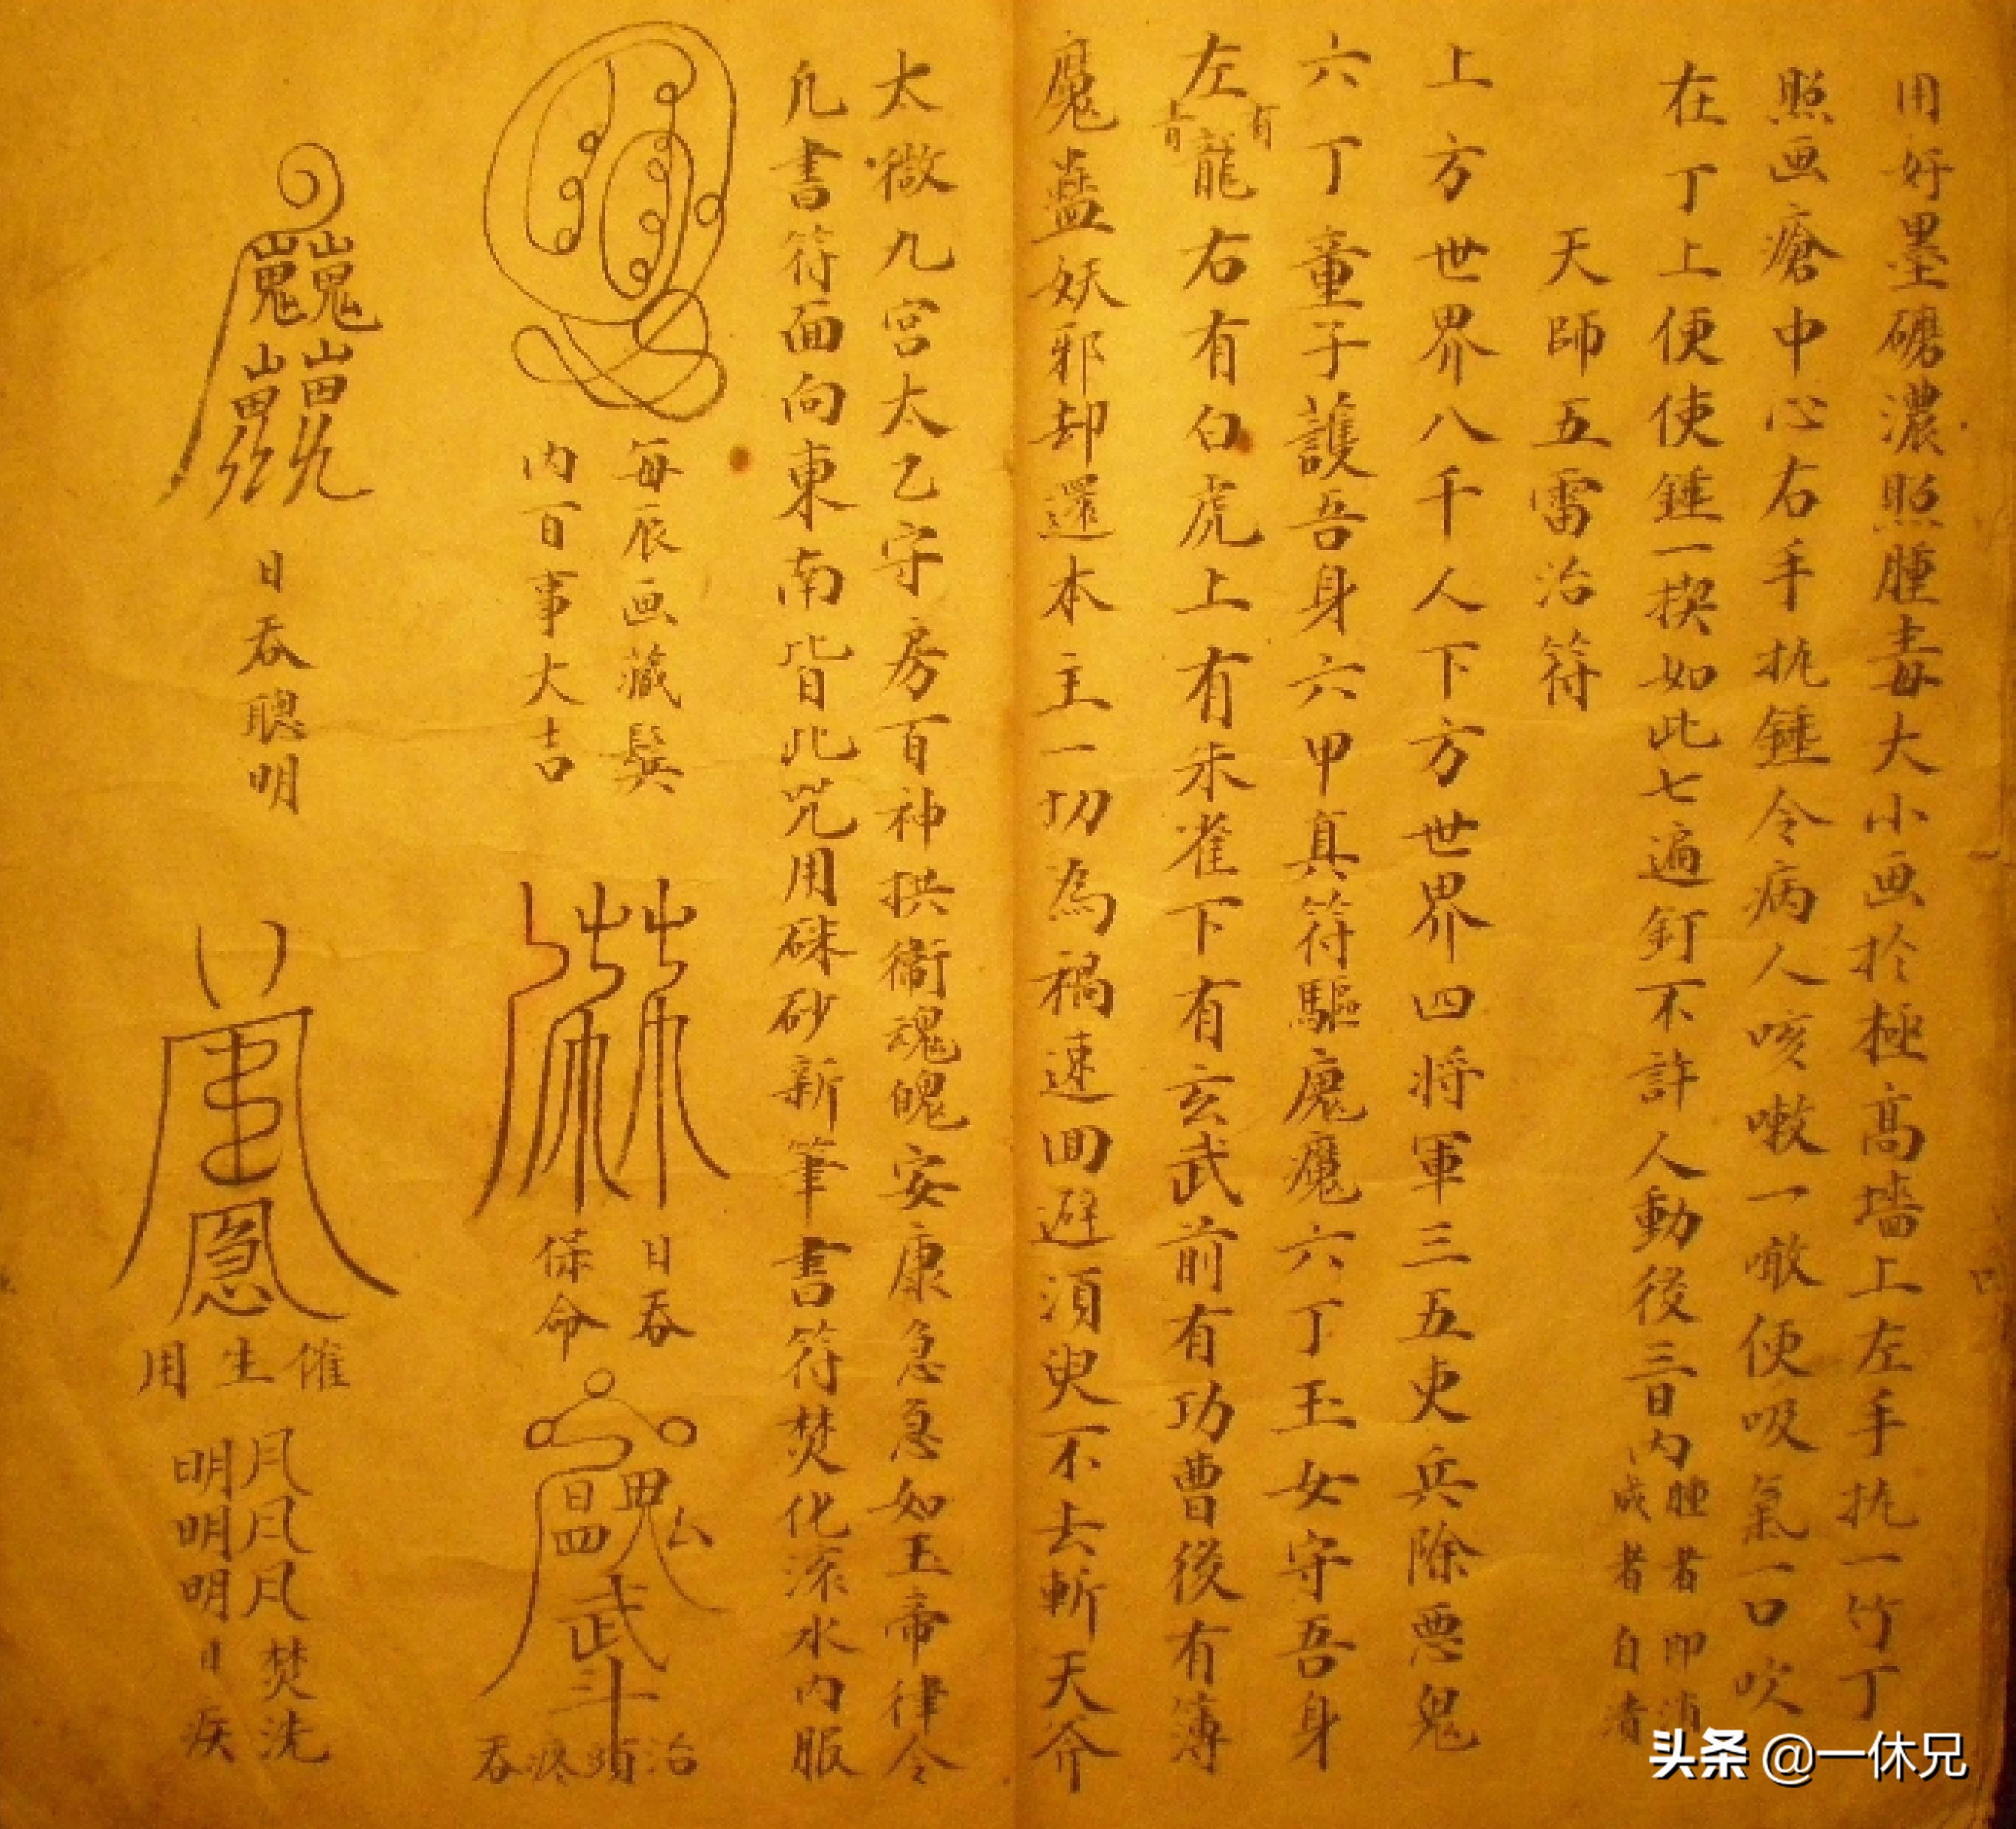 用好墨磨濃照腫毒大小画於極高墻上左手执一竹丁
照画瘡中心右手执錘令病人咳嗽一嗽便吸氣一口吹
在丁上便使錘一揳如此七遍釘不許人動後三日内
腫者即消
成者自潰
天師五雷治符
上方世界八千人下方世界四将軍三五吏兵除惡鬼
六丁童子護吾身六甲真符驅魔魔六丁玉女守吾身
左有青龍右有白虎上有朱雀下有玄武前有功曹後有簿
魔蠱妖邪却還本主一切為禍速回避須臾不去斬天斧
太微九宮太乙守房百神拱衛魂魄安康急急如玉帝律令
凡書符面向東南皆此咒用硃砂新筆書符焚化滚水内服
每辰画藏鬓
内百事大吉
日吞
保命
治頭疼吞
日吞聰明
催生用
焚洗
日疾
头条 @一休兄